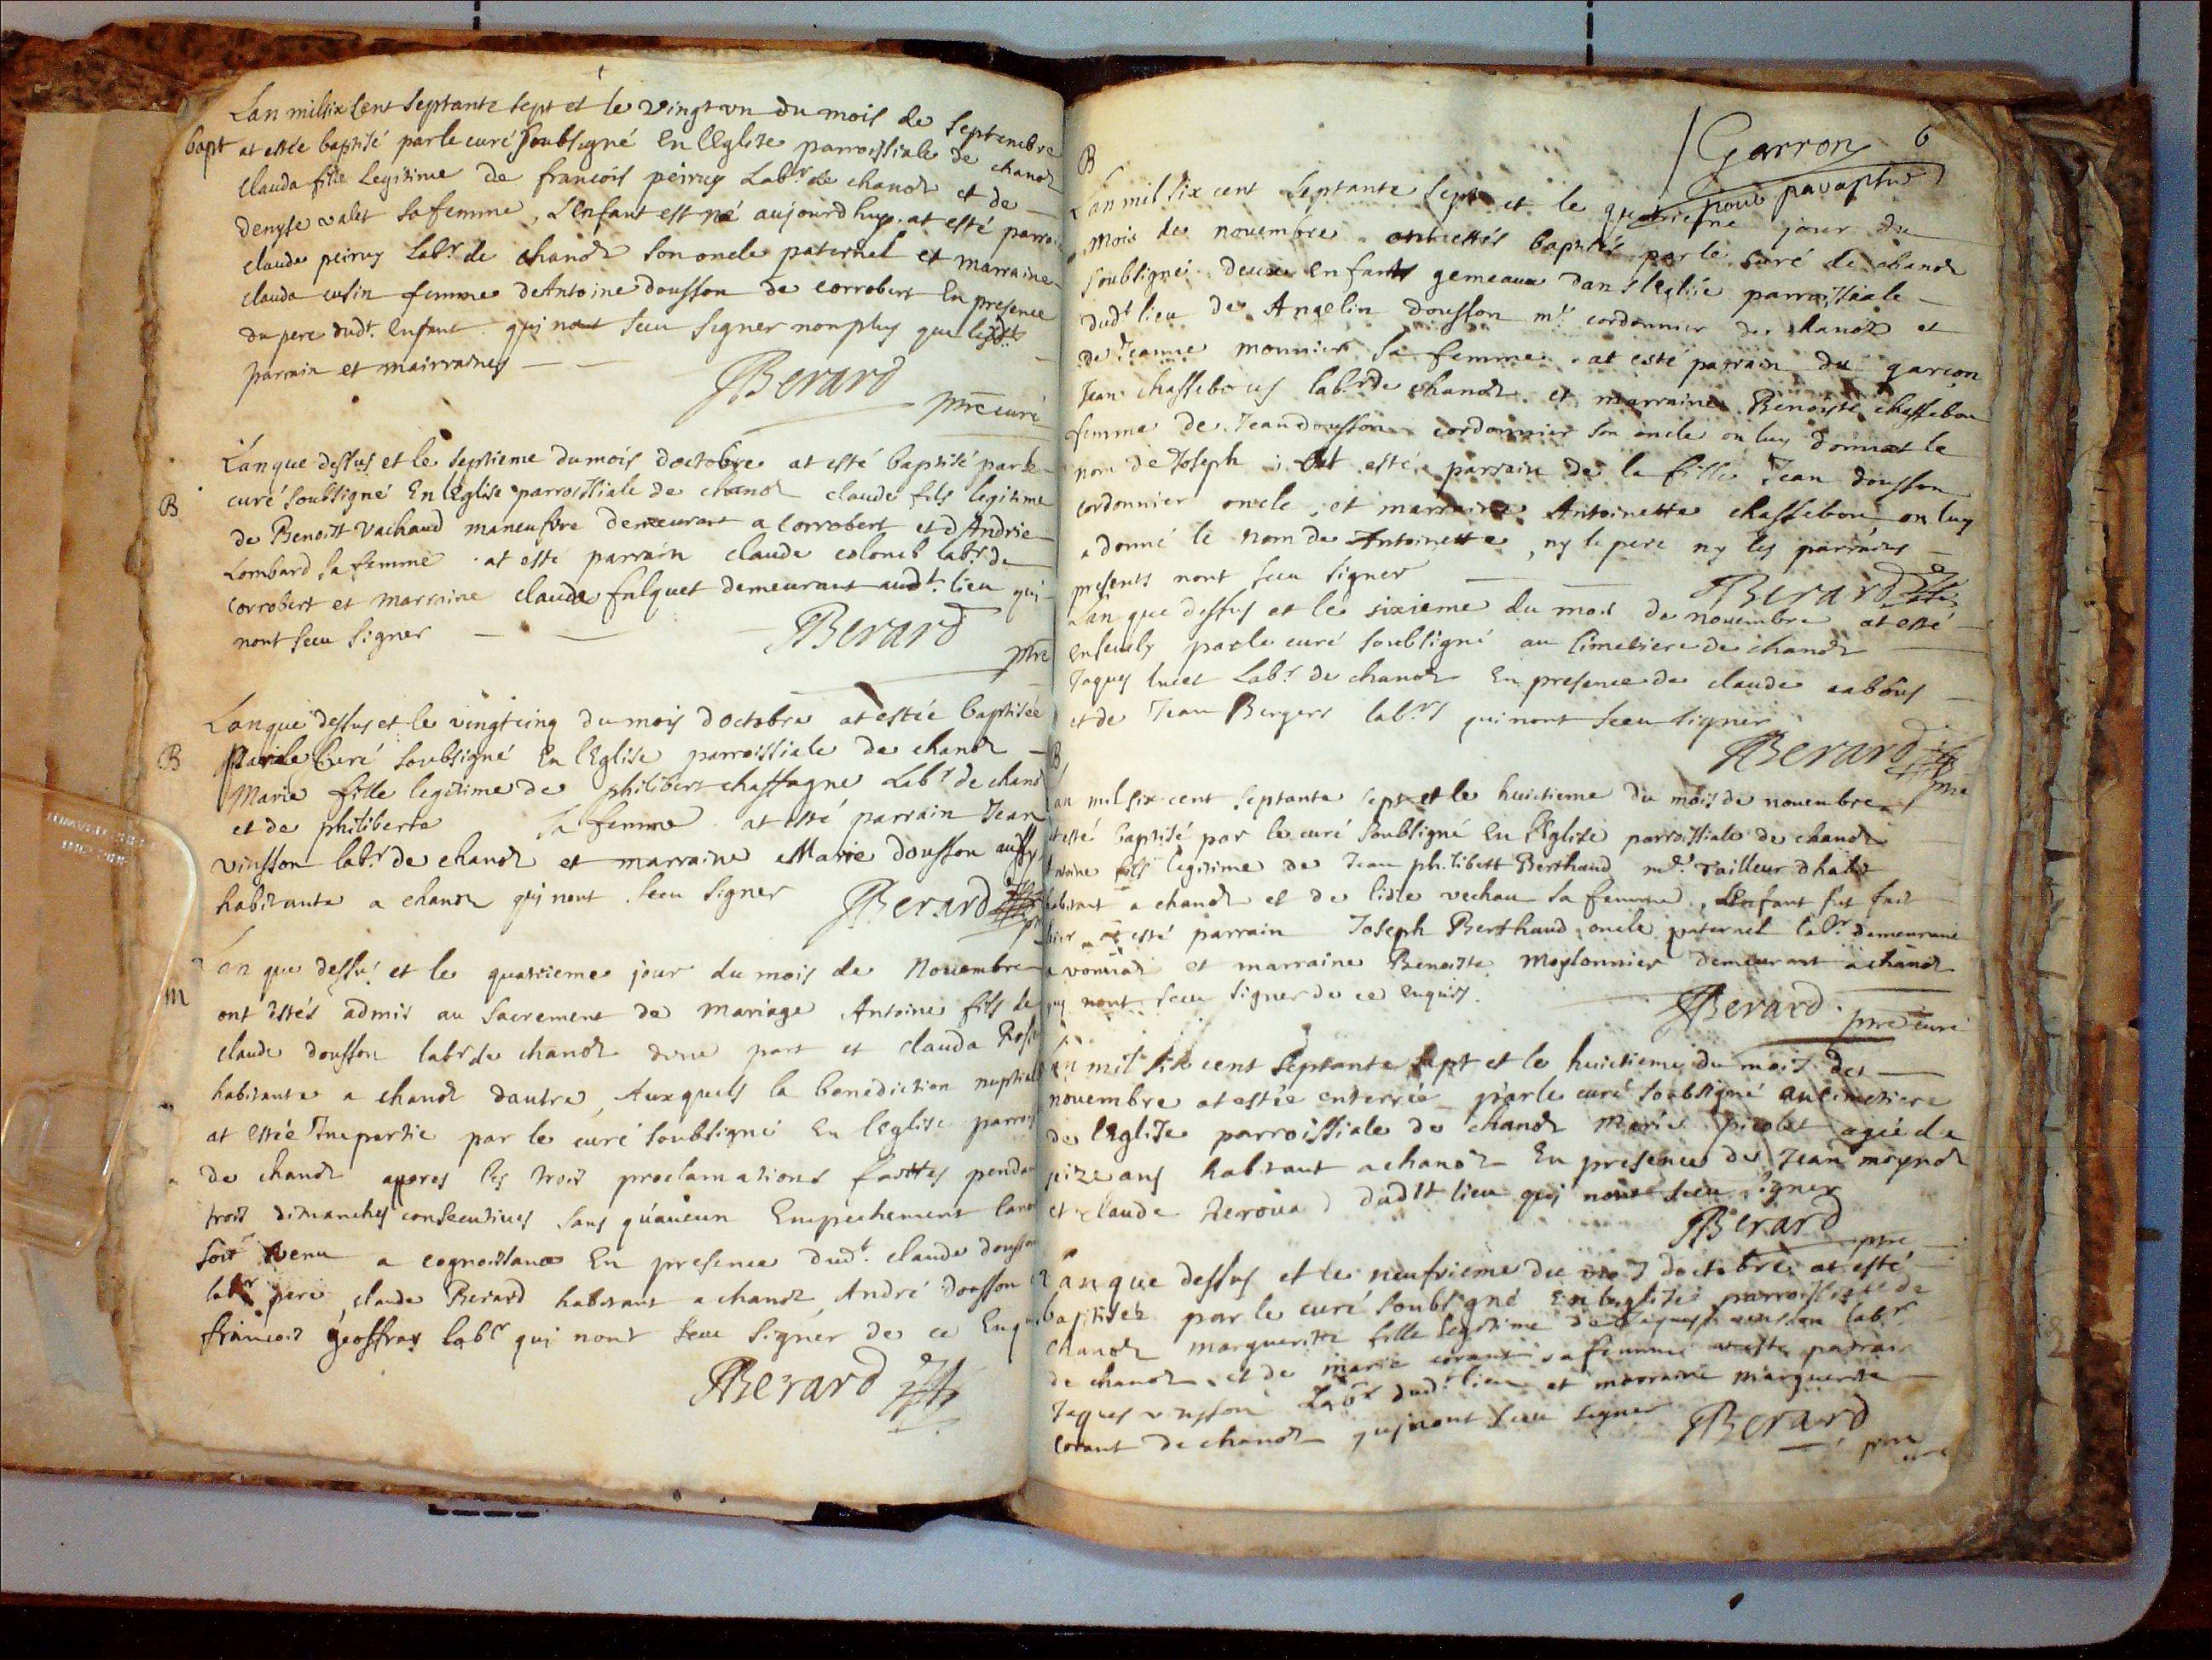 Lan milsix Cent Septante sept et le vingt vn du mois de Septembre
bapt at estée baptisé par le curé soubsigné En lEglise parroissiale de chanoz
clauda fille legitime de francois peiruy Labr de chanoz et de
denyse valet sa femme, L'enfant est né aujourdhuy. at esté parrain
claude peiruy labr de chanoz son oncle paternel et marraine
clauda cusin femme de Antoine dousson de corrobert En presence
du pere dudt enfant quj nont sceu signer non plus que lesdts
parrain et mairraines
JBerard
ptre curé
Lan que dessus et le septieme du mois doctobre at esté baptisé par le
B
curé soubsigné En lEglise parroissiale de chanoz claude fils legitime
de Benoist Vachaud maneufvre demeurant a Corrobert et dAndrie
Lombard sa femme . at esté parrain claude colomb labr de
corrobert et marraine clauda falquet demeurant audt lieu qui
nont sceu signer
JBerard
ptre
Lan que dessus et le vingtcinq du mois doctobre at estée baptisée
B
par le Curé soubsigné En lEglise parroissiale de chanoz
Marie fille legitime de philibert chassagne Labr de chanoz
et de philiberte sa femme at esté parrain Jean
vinsson labr de chanoz et marraine Marie dousson aussy
habitante a chanoz quj nont sceu signer JBerard
ptre
Lan que dessus et le quatrieme jour du mois de Novembre
M
ont estés admis au Sacrement de Mariage Antoine fils de
claude dousson labr de chanoz dune part et clauda
habitante a chanoz dautre, Auxquels la benediction nuptiale
at estée Impartie par le curé soubsigné En lEglise
de chanoz apres les trois proclamations faittes pendant
trois dimanches consecutives sans quaucun Empechement
soit venu a cognoissance En presence dudt claude dousson
labr pere, claude Berard habitant a chanoz, André dousson
francois geoffray labr qui nont sceu signer de ce Enquis
JBerard
Garron 6
B
Lan mil six cent septante sept et le quatrieme jour du
mois de novembre ont estés baptisés par le curé de chanoz
soubsigné deux enfants gemeaux dans lEglise parroissiale
dudt lieu de Angelin dousson mr cordonnier de chanoz et
de Jeanne monnier sa femme. at esté parrain du garcon
Jean chassebouy labr de chanoz et marraine Benoiste chassebou
femme de Jean dousson cordonnier son oncle on luy donnat le
nom de Joseph; at esté parrain de la fille Jean dousson
cordonnier oncle, et marraine Antoinette chassebou on luy
a donné le nom de Antoinette, ny le pere ny les parrains
presents nont sceu signer
JBerard
Lan que dessus et le sixieme du mois de novembre at esté
ensevely par le curé soubsigné au Cimetiere de chanoz
Jaques lucet Labr de chanoz En presence de claude
et de Jean Berger labrs qui nont sceu signer
JBerard
ptre
B
Lan mil six cent septante sept et le huictieme du mois de novembre
at esté baptisé par le curé soubsigné En lEglise parroissiale de chanoz
Antoine fils legitime de Jean philibert Berthaud mr Tailleur dhabit
habitant a chanoz et de vechau sa femme, Lenfant fut fait
hier at esté parrain Joseph Berthaud oncle paternel labr demeurant
a vonnas et marraine Benoiste Moylonnier demeurant a chanoz
quj nont sceu signer de ce enquis.
JBerard
ptre curé
Lan mil six cent septante sept et le huictieme du mois de
novembre at estée enterrée par le curé soubsigné au cimetiere
de lEglise parroissiale de chanoz Marie picolet agée de
seize ans habitant a chanoz En presence de Jean
et claude dudit lieu quj nont sceu signer
JBerard
ptre
Lan que dessus et le neufvieme du mois doctobre at esté
baptisée par le curé soubsigné en leglise parroissialle de
chanoz marguerite fille legitime de Jaques vinsson labr
de chanoz et de marie corant sa femme at esté parrain
Jaques vinsson Labr dudt lieu et marraine marguerite
corant de chanoz quj nont sceu signer
JBerard
ptre